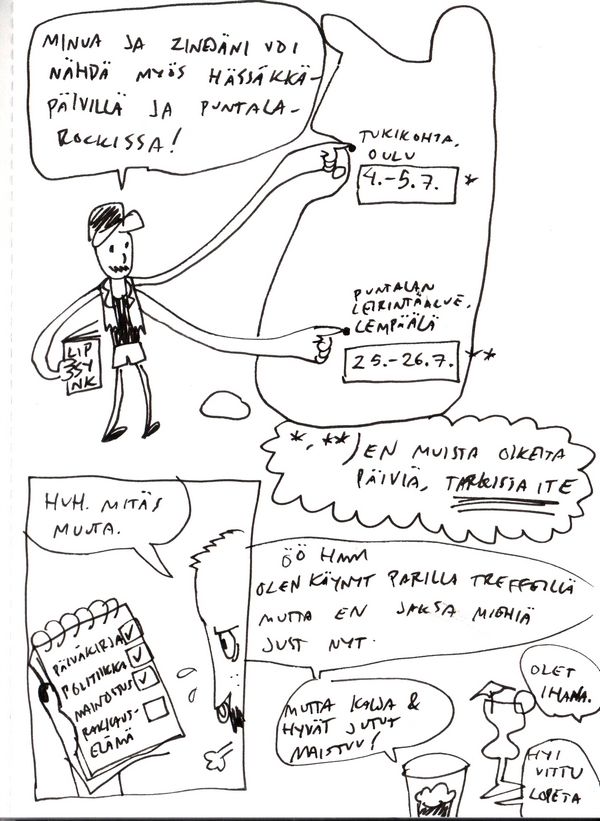 MINUA JA ZINEJÄNI VOI
NÄHDÄ MYÖS HÄSSÄKKÄ-
PÄIVILLÄ JA PUNTALA-
ROCKISSA!
TUKIKOHTA,
OULU
4.-5.7. *
PUNTALAN
LEIRINTÄALUE,
LEMPÄÄLÄ
25.-26.7. **
LIP
SSY
NK
*, **) EN MUISTA OIKEITA
PÄIVIÄ, TARKISTA ITE
HUH. MITÄS
MUUTA.
PÄIVÄKIRJA ✓
POLITIIKKA ✓
MAINOSTUS ✓
RAKKAUS-
ELÄMÄ
ÖÖ HMM
OLEN KÄYNYT PARILLA TREFFEILLÄ
MUTTA EN JAKSA MIEHIÄ
JUST NYT.
MUTTA KALJA &
HYVÄT JUTUT
MAISTUU!
OLET
IHANA.
HYI
VITTU
LOPETA